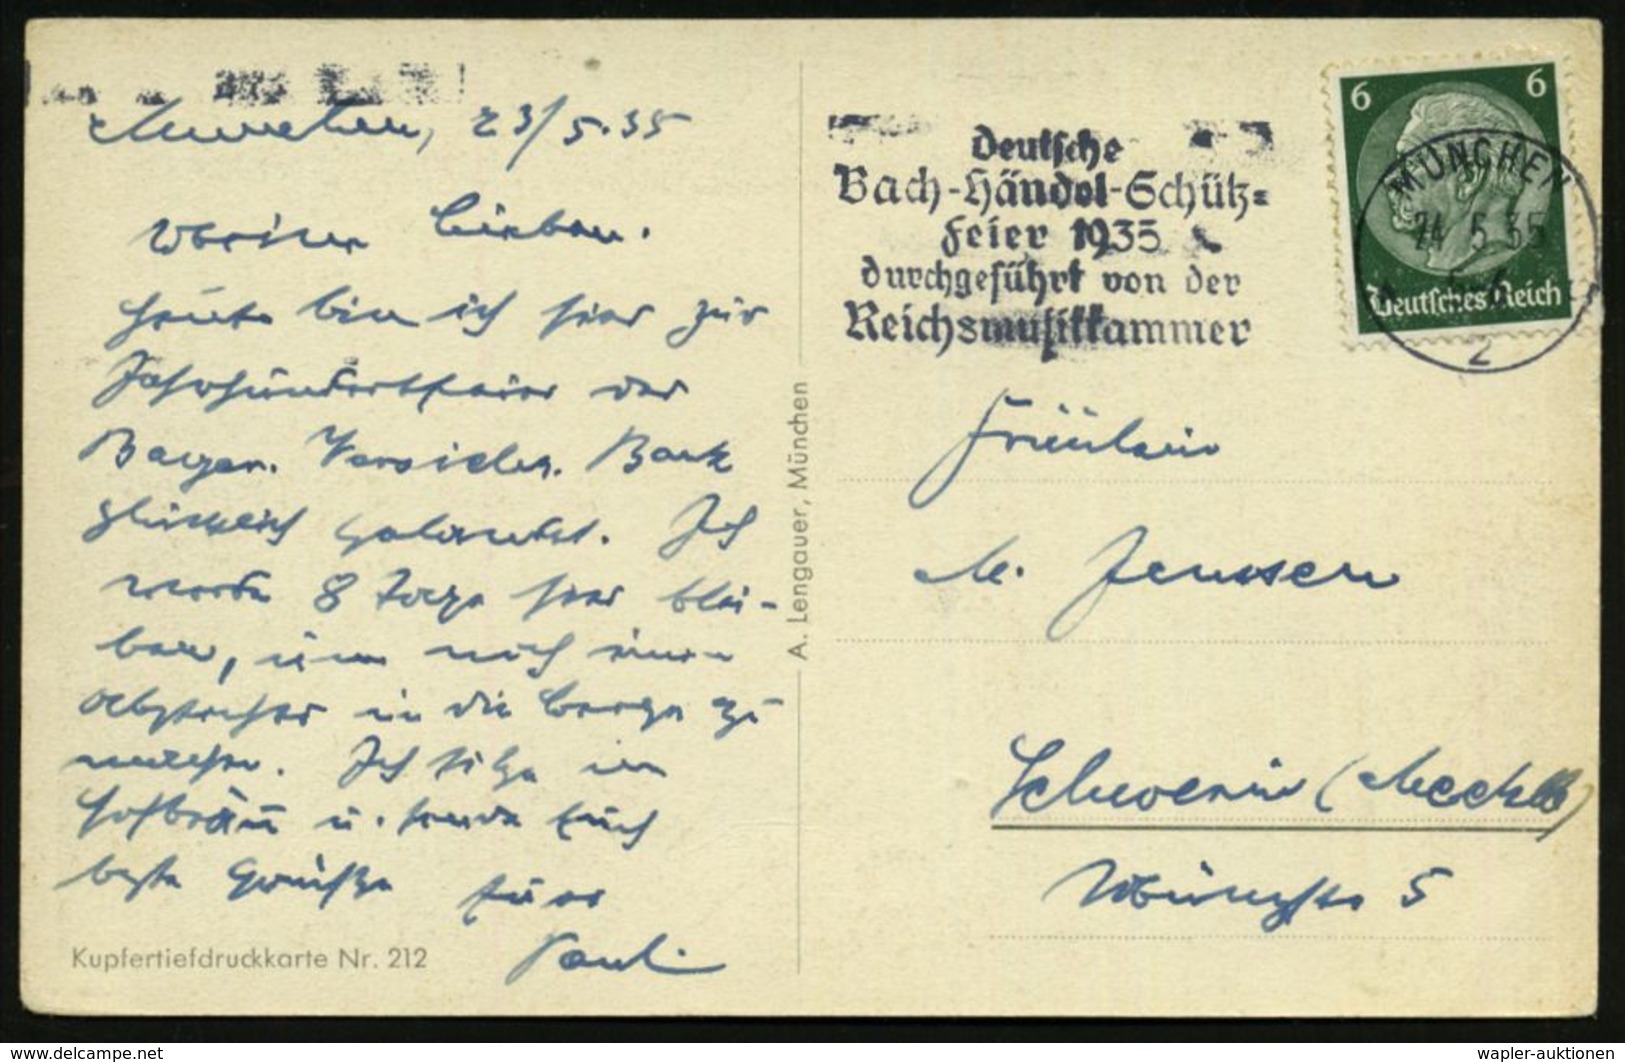 München, 23/5.35
Meine Lieben.
Heute bin ich hier zur
Jahrhundertfeier der
Bayer. Versicher. Bank
glücklich gelandet. Ich
werde 8 Tage hier blei-
ben, um noch einen
Abstecher in die Berge zu
machen. Ich sitze im
Hofbräu u. sende Euch
beste Grüße Euer
Pauli
Kupfertiefdruckkarte Nr. 212
A. Lengauer, München
Deutsche
Bach-Händel-Schütz=
Feier 1935
durchgeführt von der
Reichsmusikkammer
6 6
Deutsches Reich
MÜNCHEN
24 5 35
5-6
2
Fräulein
M. Jenssen
Schwerin (Meckl)
5
wapler-auktionen
www.delcampe.net